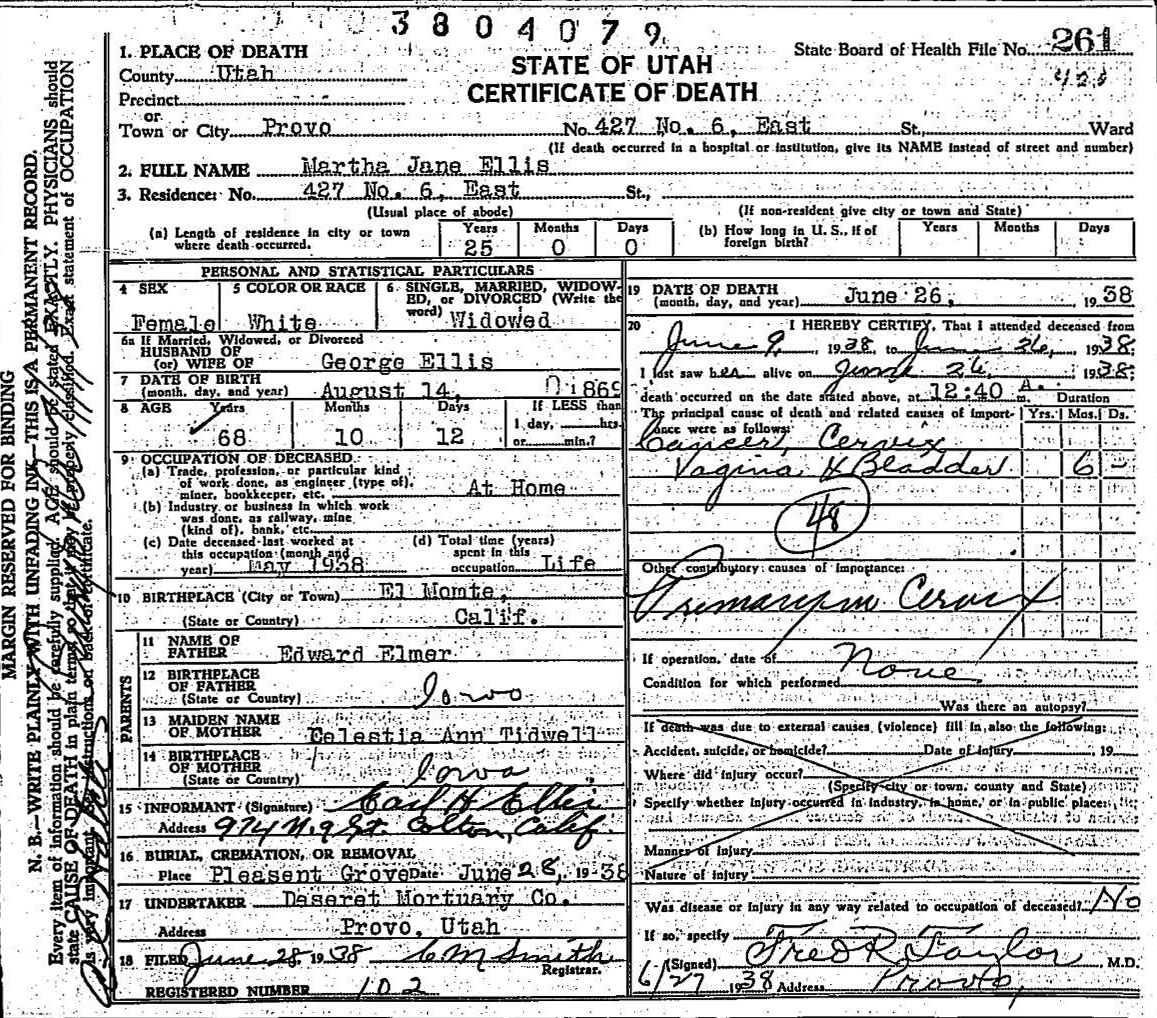 3804079
1. PLACE OF DEATH
State Board of Health File No. 261
County Utah
STATE OF UTAH
Precinct
CERTIFICATE OF DEATH
or
Town or City Provo No. 427 No. 6, East St., Ward
(If death occurred in a hospital or institution, give its NAME instead of street and number)
2. FULL NAME Martha Jane Ellis
3. Residence: No. 427 No. 6, East St.,
(Usual place of abode) (If non-resident give city or town and State)
(a) Length of residence in city or town where death occurred. Years 25 Months 0 Days 0
(b) How long in U. S., if of foreign birth? Years Months Days
PERSONAL AND STATISTICAL PARTICULARS
4 SEX Female
5 COLOR OR RACE White
6 SINGLE, MARRIED, WIDOWED, or DIVORCED (Write the word) Widowed
6a If Married, Widowed, or Divorced
HUSBAND OF
(or) WIFE OF George Ellis
7 DATE OF BIRTH
(month, day, and year) August 14, 1869
8 AGE Years 68 Months 10 Days 12 If LESS than 1 day, hrs. or min.?
9 OCCUPATION OF DECEASED
(a) Trade, profession, or particular kind
of work done, as engineer (type of),
miner, bookkeeper, etc. At Home
(b) Industry or business in which work
was done, as railway, mine
(kind of), bank, etc.
(c) Date deceased last worked at
this occupation (month and
year) May 1938
(d) Total time (years)
spent in this
occupation Life
10 BIRTHPLACE (City or Town) El Momte,
(State or Country) Calif.
PARENTS
11 NAME OF
FATHER Edward Elmer
12 BIRTHPLACE
OF FATHER
(State or Country) Iowa
13 MAIDEN NAME
OF MOTHER Celestia Ann Tidwell
14 BIRTHPLACE
OF MOTHER
(State or Country) Iowa
15 INFORMANT (Signature) Earl H Ellis
Address 974 N. 9 St. Colton, Calif.
16 BURIAL, CREMATION, OR REMOVAL
Place Pleasent Grove Date June 28, 1938
17 UNDERTAKER Deseret Mortuary Co.
Address Provo, Utah
18 FILED June 28, 1938 C M Smith
Registrar.
REGISTERED NUMBER 102
19 DATE OF DEATH
(month, day, and year) June 26, 1938
20 I HEREBY CERTIFY, That I attended deceased from
June 9, 1938, to June 26, 1938
I last saw her alive on June 26 1938
death occurred on the date stated above, at 12:40 A. m. Duration
The principal cause of death and related causes of importance were as follows: Yrs. Mos. Ds.
Cancer, Cervix
Vagina & Bladder 6 -
48
Other contributory causes of importance:
Primary in Cervix
If operation, date of None
Condition for which performed
Was there an autopsy?
If death was due to external causes (violence) fill in also the following:
Accident, suicide, or homicide? Date of injury 19
Where did injury occur?
(Specify city or town, county and State)
Specify whether injury occurred in industry, in home, or in public place:
Manner of Injury
Nature of Injury
Was disease or injury in any way related to occupation of deceased? No
If so, specify
(Signed) Fred R Taylor M.D.
6/27 1938 Address Provo,
MARGIN RESERVED FOR BINDING
N. B.—WRITE PLAINLY WITH UNFADING INK—THIS IS A PERMANENT RECORD.
Every item of information should be carefully supplied. AGE should be stated EXACTLY. PHYSICIANS should
state CAUSE OF DEATH in plain terms so that it may be properly classified. Exact statement of OCCUPATION
is very important. instructions on back of certificate.